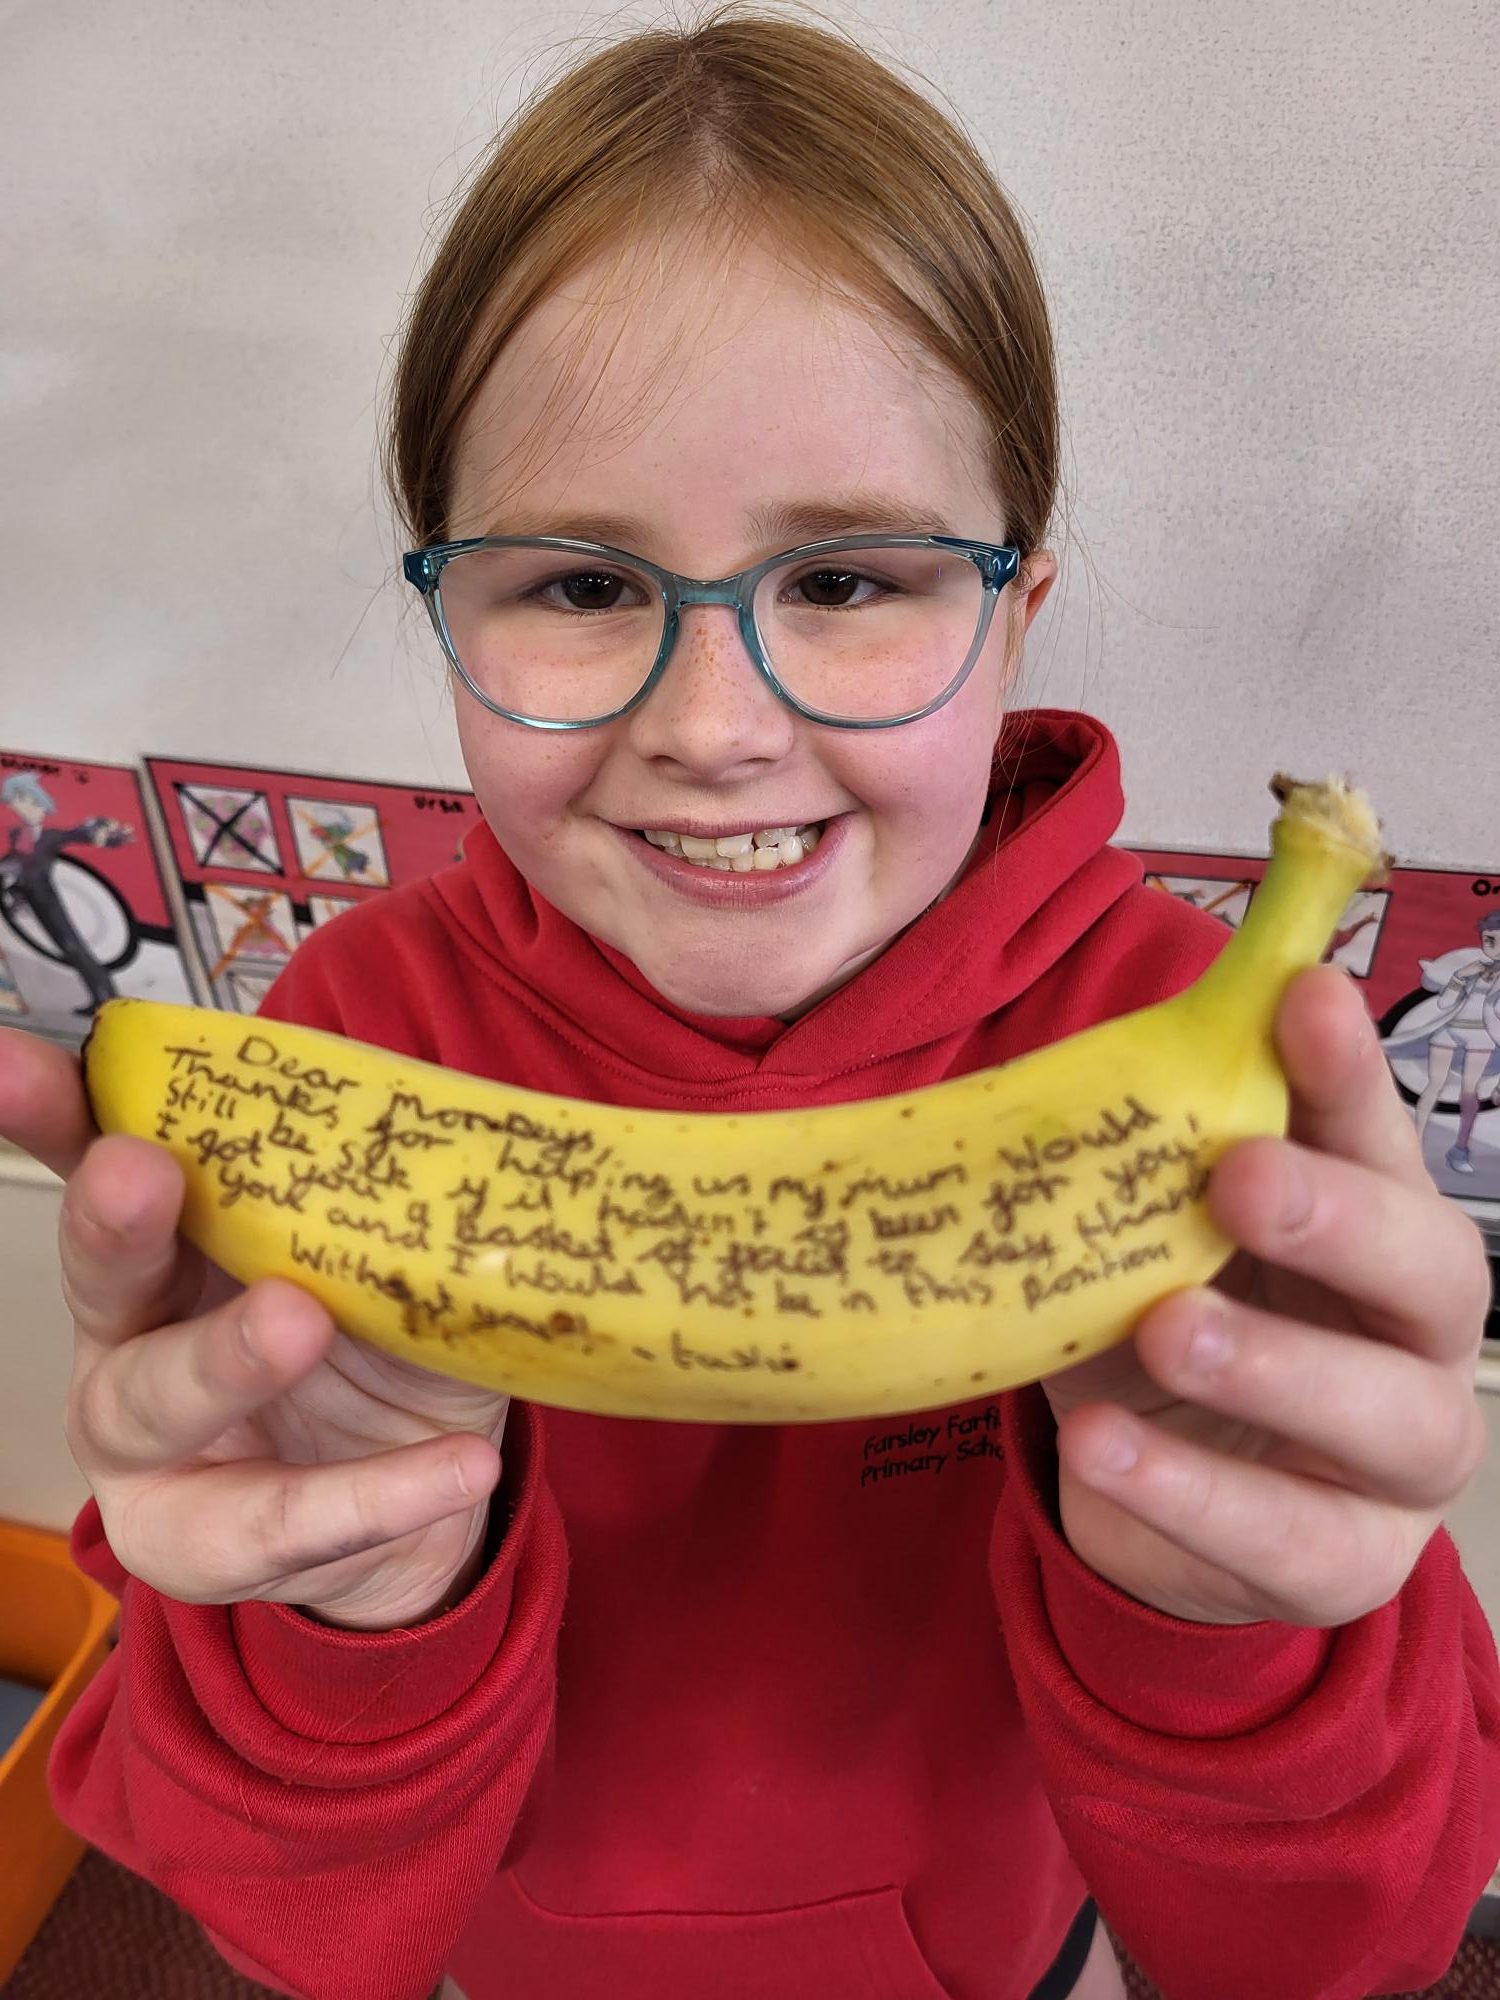 Dear monkeys,
Thanks for helping us my mum would
still be sik if it haden't of been for you!
I got you a basket of fruit to say thank
you and I would not be in this position
without you!
Farsley Farfi
Primary Scho